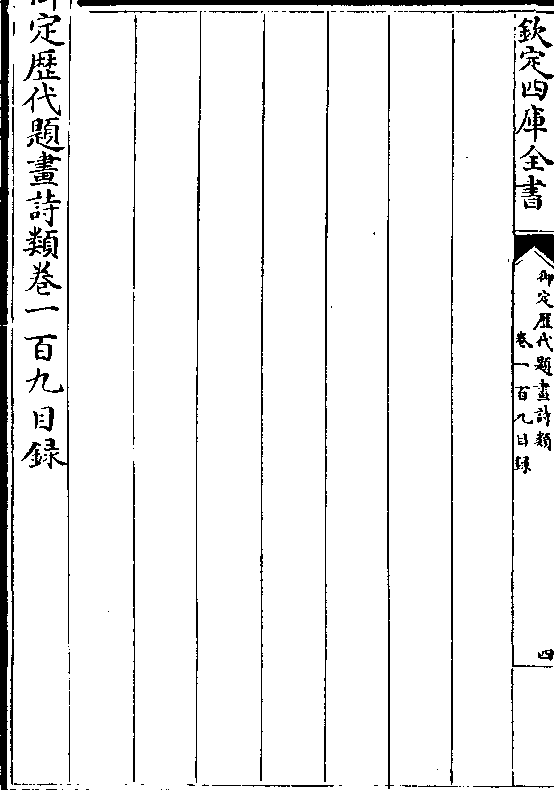 欽定四庫全書
御定歷代題畫詩類
卷一百九目録
四
御定歴代題畫詩類卷一百九目録